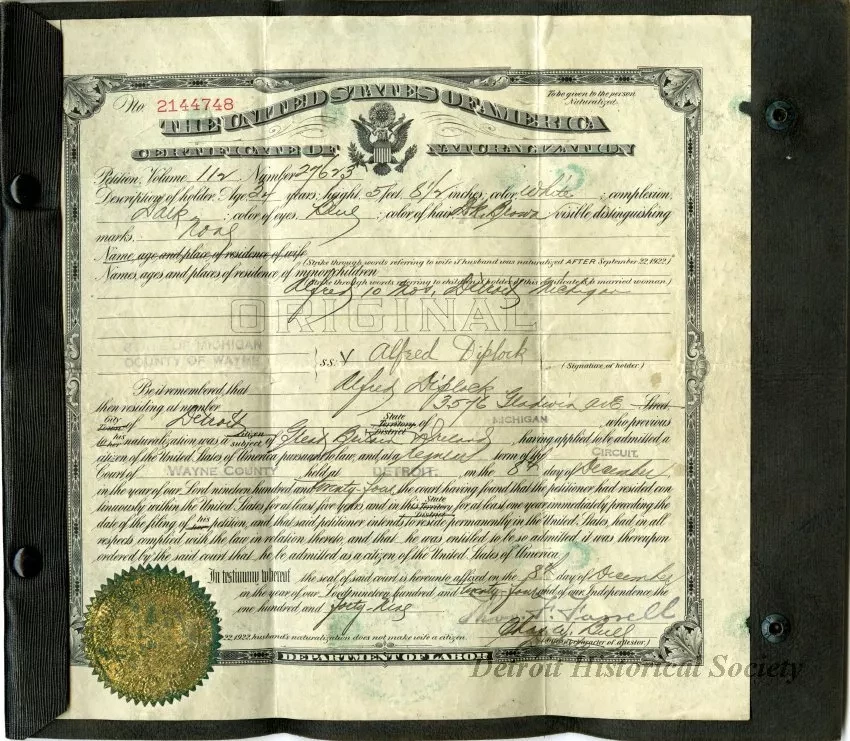 No. 2144748
To be given to the person Naturalized.
THE UNITED STATES OF AMERICA
CERTIFICATE OF NATURALIZATION
Petition, Volume 112 Number 27623
Description of holder: Age 34 years; height, 5 feet, 8 1/2 inches; color, White; complexion,
Dark; color of eyes, Blue; color of hair, Dk. Brown; visible distinguishing
marks, None
Name, age and place of residence of wife (Strike through words referring to wife if husband was naturalized AFTER September 22, 1922.)
Names, ages and places of residence of minor children (Strike through words referring to children if holder of this certificate is a married woman.)
Alfred 10 Nov, Detroit, Michigan
ORIGINAL
STATE OF MICHIGAN
COUNTY OF WAYNE
s.s. Alfred Diplock
(Signature of holder.)
Be it remembered, that Alfred Diplock
then residing at number 13576 Gladwin ave Street
City Town of Detroit State Territory District of MICHIGAN, who previous
to his her naturalization was a citizen subject of Great Britain & Ireland, having applied to be admitted a
citizen of the United States of America pursuant to law, and at a regular term of the CIRCUIT
Court of WAYNE COUNTY held at DETROIT, on the 8th day of December
in the year of our Lord nineteen hundred and twenty-four the court having found that the petitioner had resided con-
tinuously within the United States for at least five years and in this State Territory for at least one year immediately preceding the
date of the filing of his her petition, and that said petitioner intends to reside permanently in the United States, had in all
respects complied with the law in relation thereto, and that he was entitled to be so admitted, it was thereupon
ordered by the said court that he be admitted as a citizen of the United States of America.
In testimony whereof the seal of said court is hereunto affixed on the 8th day of December
in the year of our Lord nineteen hundred and twenty-four and of our Independence the
one hundred and forty-nine
Thos. F. Farrell
22, 1922, husband's naturalization does not make wife a citizen.
(Official character of attestor.)
DEPARTMENT OF LABOR
Detroit Historical Society